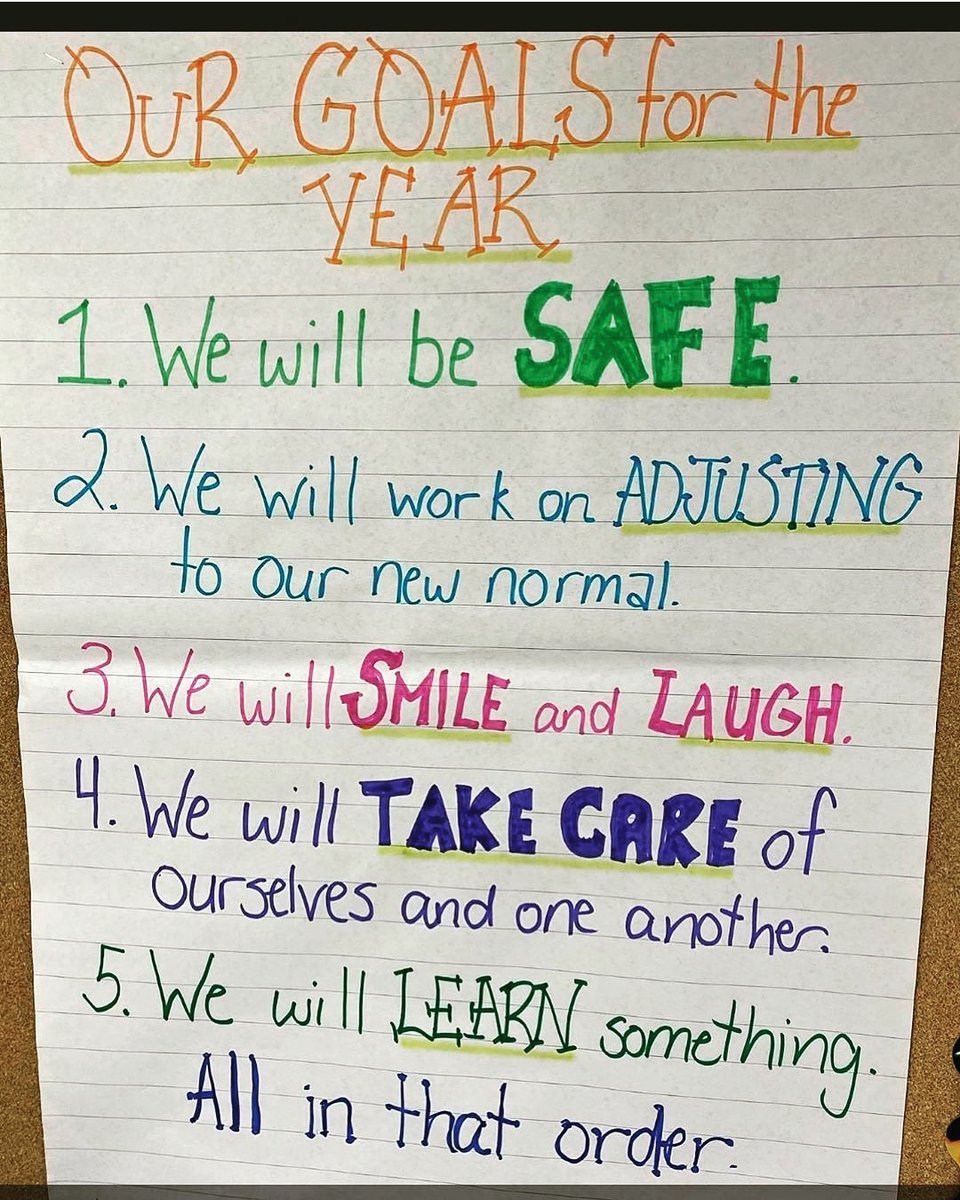 OUR GOALS for the
YEAR
1. We will be SAFE.
2. We will work on ADJUSTING
to our new normal.
3. We will SMILE and LAUGH.
4. We will TAKE CARE of
ourselves and one another.
5. We will LEARN something.
All in that order.